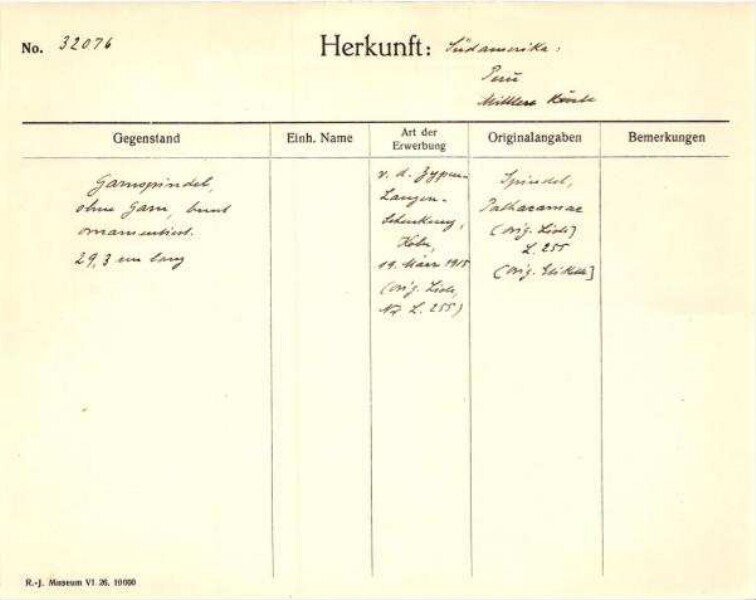 No. 32076
Herkunft: Südamerika:
Peru
Mittlere Küste
Gegenstand
Einh. Name
Art der Erwerbung
Originalangaben
Bemerkungen
Garnspindel,
ohne Garn, bunt
ornamentiert.
29,3 cm lang
v. d. Zypen-
Langen-
Schenkung,
Köln,
19. März 1915
(orig. Liste,
No L. 255)
Spindel,
Pathacamac
(orig. Liste)
L. 255
(orig. Etikette]
R.-J. Museum VI 26. 10000